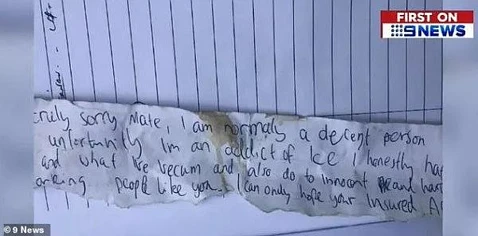 FIRST ON
9NEWS
sorry Mate, I am normaly a decent person
untortaintly Im an addict of Ice I honestly ha
and what Ive vecum and also do to innocent and har
people like you. I can only hope your Insured. A
9 News